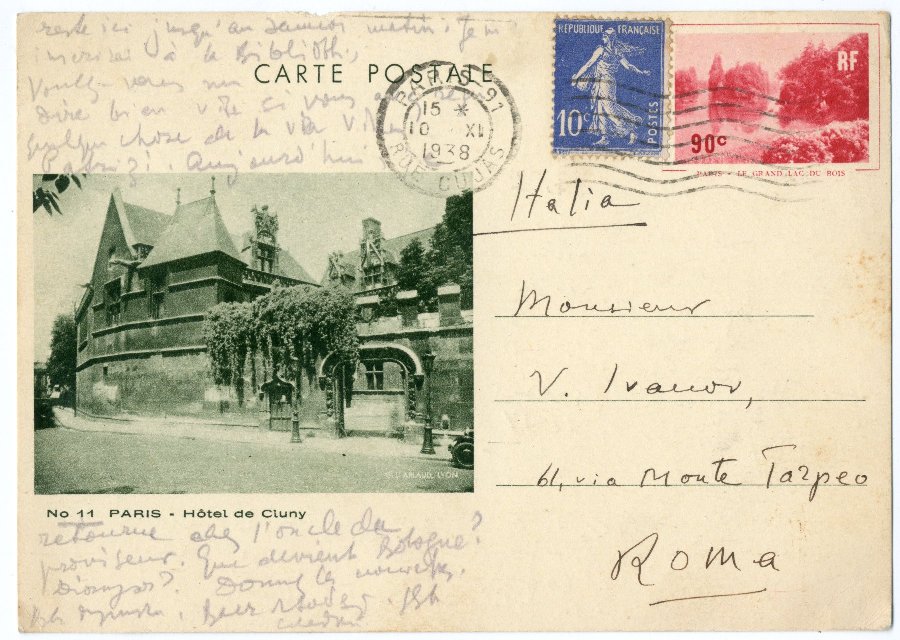 reste ici jusqu'au samedi matin. Je m'
à la Biblioth.
Voulez-vous me
dire bien vite si vous
quelque chose de la via V
Aujourd'hui
CARTE POSTALE
PARIS · 91
15 *
10 XI
1938
RUE CUJAS
RÉPUBLIQUE FRANÇAISE
10c
POSTES
RF
90c
PARIS - LE GRAND LAC DU BOIS
Italia
Monsieur
V. Ivanov,
61, via Monte Tarpeo
Roma
LYON
No 11 PARIS - Hôtel de Cluny
retourne chez l'oncle du
proviseur. Que devient Bologne?
Dionysos? Donnez les nouvelles.